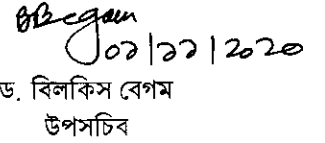 BBegum
০১|১১|২০২০
ড. বিলকিস বেগম
উপসচিব